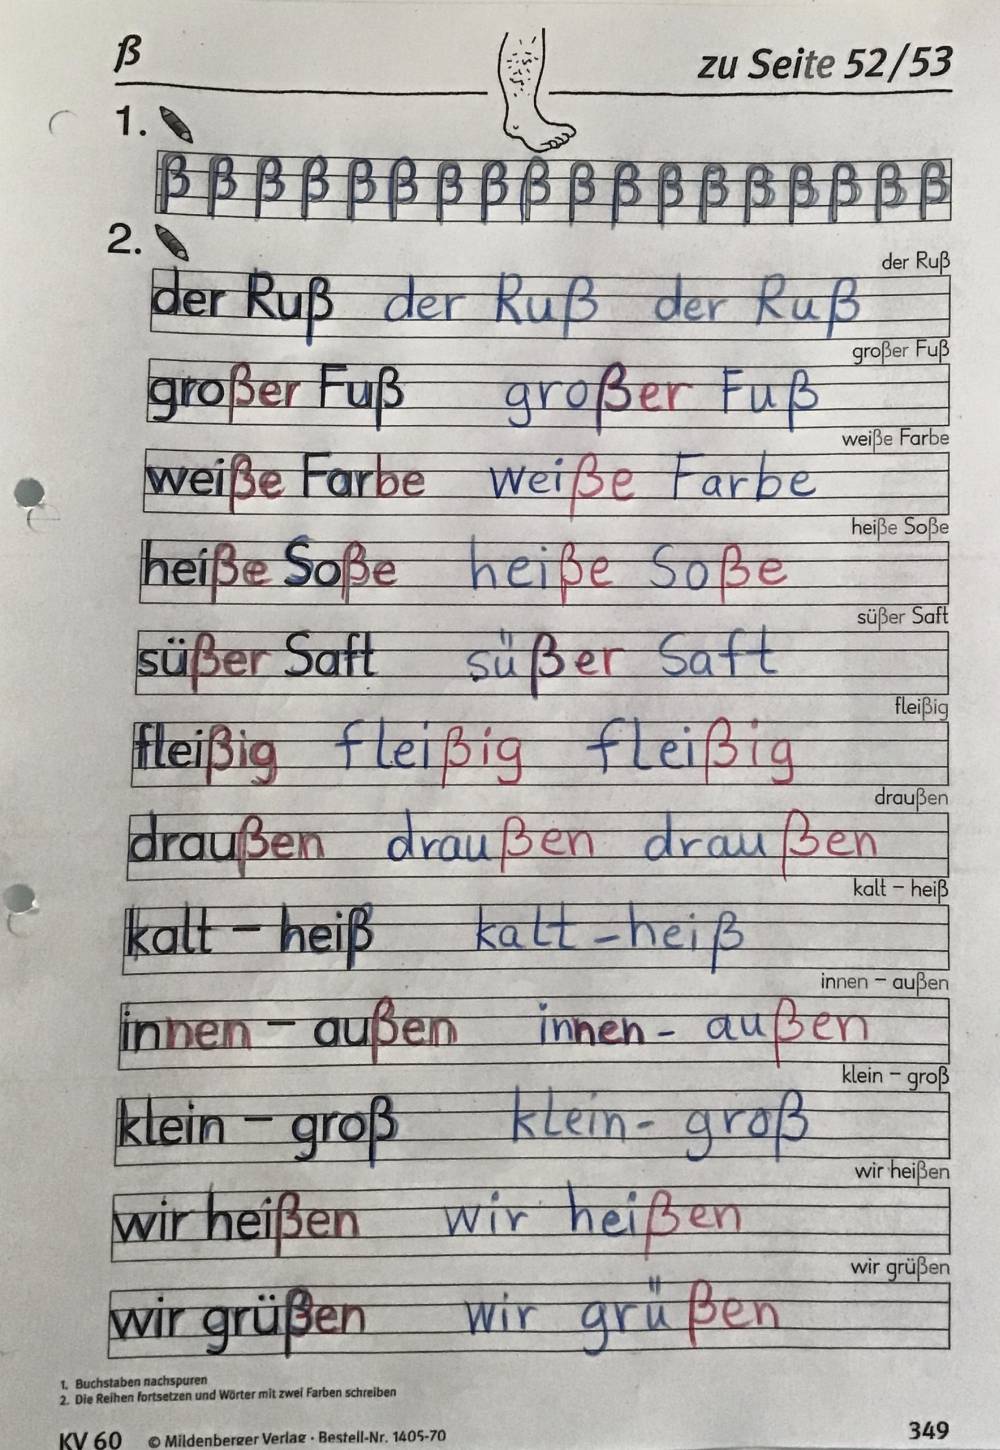 ß zu Seite 52/53
1.
ß ß ß ß ß ß ß ß ß ß ß ß ß ß ß ß ß ß
2.
der Ruß
der Ruß der Ruß der Ruß
großer Fuß
großer Fuß großer Fuß
weiße Farbe
weiße Farbe weiße Farbe
heiße Soße
heiße Soße heiße Soße
süßer Saft
süßer Saft süßer Saft
fleißig
fleißig fleißig fleißig
draußen
draußen draußen draußen
kalt – heiß
kalt – heiß kalt – heiß
innen – außen
innen – außen innen - außen
klein – groß
klein – groß klein - groß
wir heißen
wir heißen wir heißen
wir grüßen
wir grüßen wir grüßen
1. Buchstaben nachspuren
2. Die Reihen fortsetzen und Wörter mit zwei Farben schreiben
KV 60 © Mildenberger Verlag · Bestell-Nr. 1405-70 349